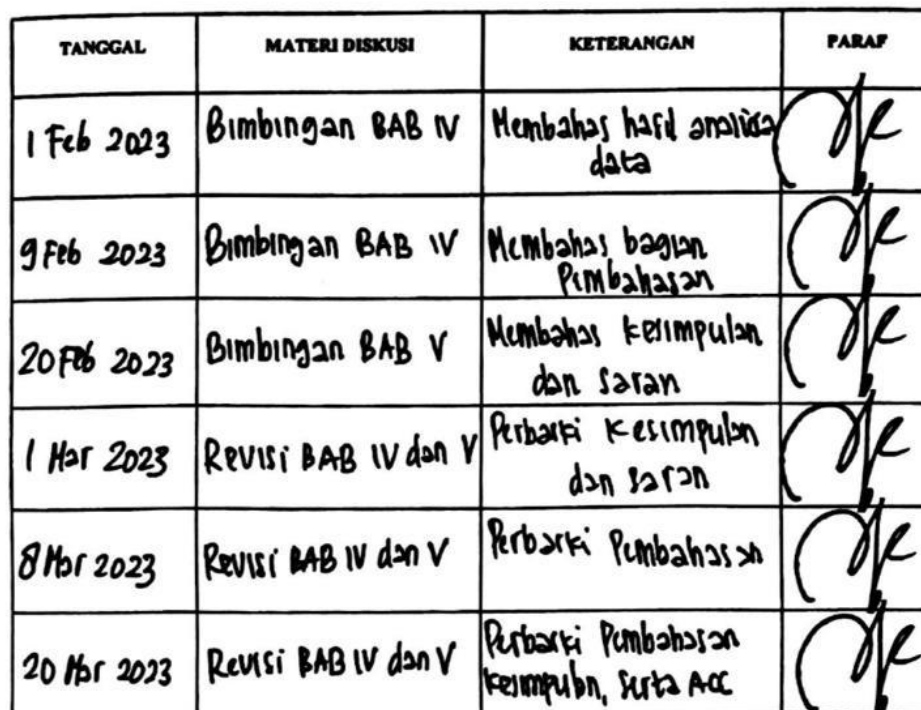 TANGGAL MATERI DISKUSI KETERANGAN PARAF
1 Feb 2023 Bimbingan BAB IV Membahas hasil analisa
data
9 Feb 2023 Bimbingan BAB IV Membahas bagian
Pembahasan
20 Feb 2023 Bimbingan BAB V Membahas kesimpulan
dan saran
1 Mar 2023 Revisi BAB IV dan V Perbaiki Kesimpulan
dan saran
8 Mar 2023 Revisi BAB IV dan V Perbaiki Pembahasan
20 Mar 2023 Revisi BAB IV dan V Perbaiki Pembahasan
kesimpulan, serta ACC